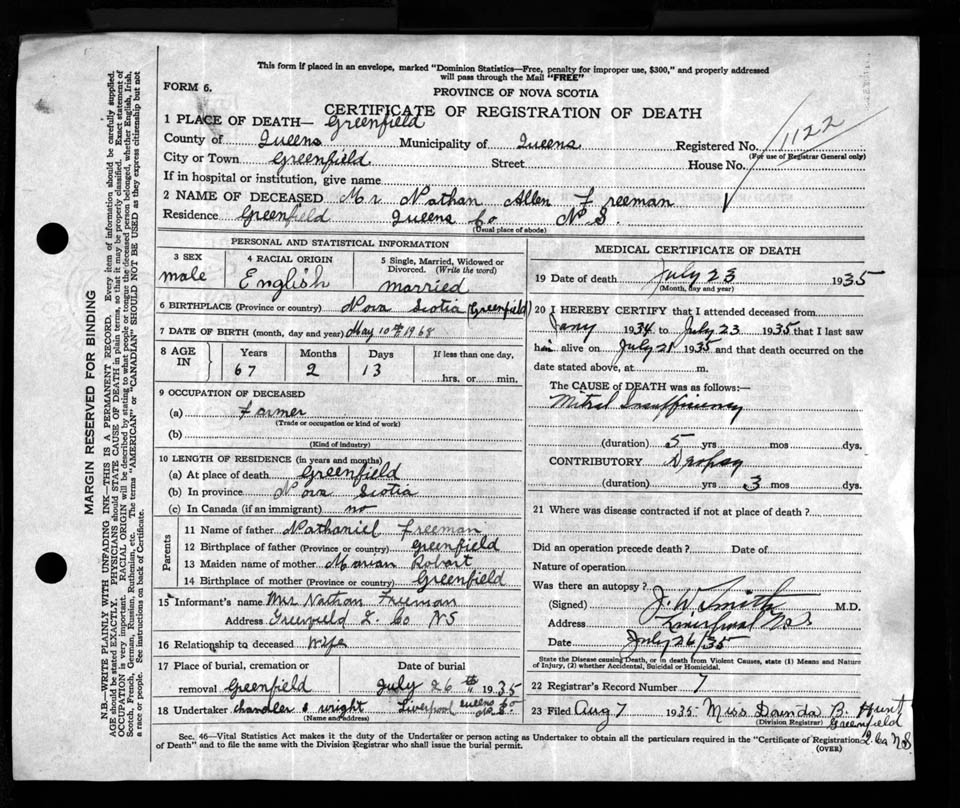 This form if placed in an envelope, marked "Dominion Statistics—Free, penalty for improper use, $300," and properly addressed
will pass through the Mail "FREE"
FORM 6.
PROVINCE OF NOVA SCOTIA
CERTIFICATE OF REGISTRATION OF DEATH
1 PLACE OF DEATH— Greenfield
County of Queens Municipality of Queens Registered No. 1122
(For use of Registrar General only)
City or Town Greenfield Street House No.
If in hospital or institution, give name
2 NAME OF DECEASED Mr Nathan Allen Freeman
Residence Greenfield Queens Co N.S.
(Usual place of abode)
PERSONAL AND STATISTICAL INFORMATION
3 SEX 4 RACIAL ORIGIN 5 Single, Married, Widowed or
Divorced. (Write the word)
male English married
6 BIRTHPLACE (Province or country) Nova Scotia (Greenfield)
7 DATE OF BIRTH (month, day and year) May 10th 1968
8 AGE IN Years Months Days If less than one day,
67 2 13 hrs. or min.
9 OCCUPATION OF DECEASED
(a) Farmer
(Trade or occupation or kind of work)
(b)
(Kind of industry)
10 LENGTH OF RESIDENCE (in years and months)
(a) At place of death Greenfield
(b) In province Nova Scotia
(c) In Canada (if an immigrant) no
Parents
11 Name of father Nathaniel Freeman
12 Birthplace of father (Province or country) Greenfield
13 Maiden name of mother Marian Robart
14 Birthplace of mother (Province or country) Greenfield
15 Informant's name Mrs Nathan Freeman
Address Greenfield Q. Co NS
16 Relationship to deceased Wife
17 Place of burial, cremation or Date of burial
removal Greenfield July 26th 1935
18 Undertaker Chandler & Wright Liverpool Queens Co
(Name and address)
MEDICAL CERTIFICATE OF DEATH
19 Date of death July 23 1935
(Month, day and year)
20 I HEREBY CERTIFY that I attended deceased from
Jany 1934 to July 23 1935 that I last saw
him alive on July 21 1935 and that death occurred on the
date stated above, at m.
The CAUSE of DEATH was as follows:—
Mitral Insufficiency
(duration) 5 yrs mos dys.
CONTRIBUTORY Dropsy
(duration) yrs 3 mos dys.
21 Where was disease contracted if not at place of death?
Did an operation precede death? Date of
Nature of operation
Was there an autopsy?
(Signed) J. W. Smith M.D.
Address Liverpool N.S.
Date July 26/35
State the Disease causing Death, or in death from Violent Causes, state (1) Means and Nature
of Injury, (2) whether Accidental, Suicidal or Homicidal.
22 Registrar's Record Number 7
23 Filed Aug 7 1935 Miss B. Hunt
(Division Registrar) Greenfield
Q. Co NS
Sec. 46—Vital Statistics Act makes it the duty of the Undertaker or person acting as Undertaker to obtain all the particulars required in the "Certificate of Registration
of Death" and to file the same with the Division Registrar who shall issue the burial permit. (OVER)
MARGIN RESERVED FOR BINDING
N.B.—WRITE PLAINLY WITH UNFADING INK—THIS IS A PERMANENT RECORD. Every item of information should be carefully supplied.
AGE should be stated EXACTLY. PHYSICIANS should STATE CAUSE OF DEATH in plain terms, so that it may be properly classified. Exact statement of
OCCUPATION is very important. RACIAL ORIGIN will be described by stating to what people or tongue the deceased person belonged, whether English, Irish,
Scotch, French, German, Russian, Ruthenian, etc. The terms "AMERICAN" or "CANADIAN" SHOULD NOT BE USED as they express citizenship but not
a race or people. See instructions on back of Certificate.